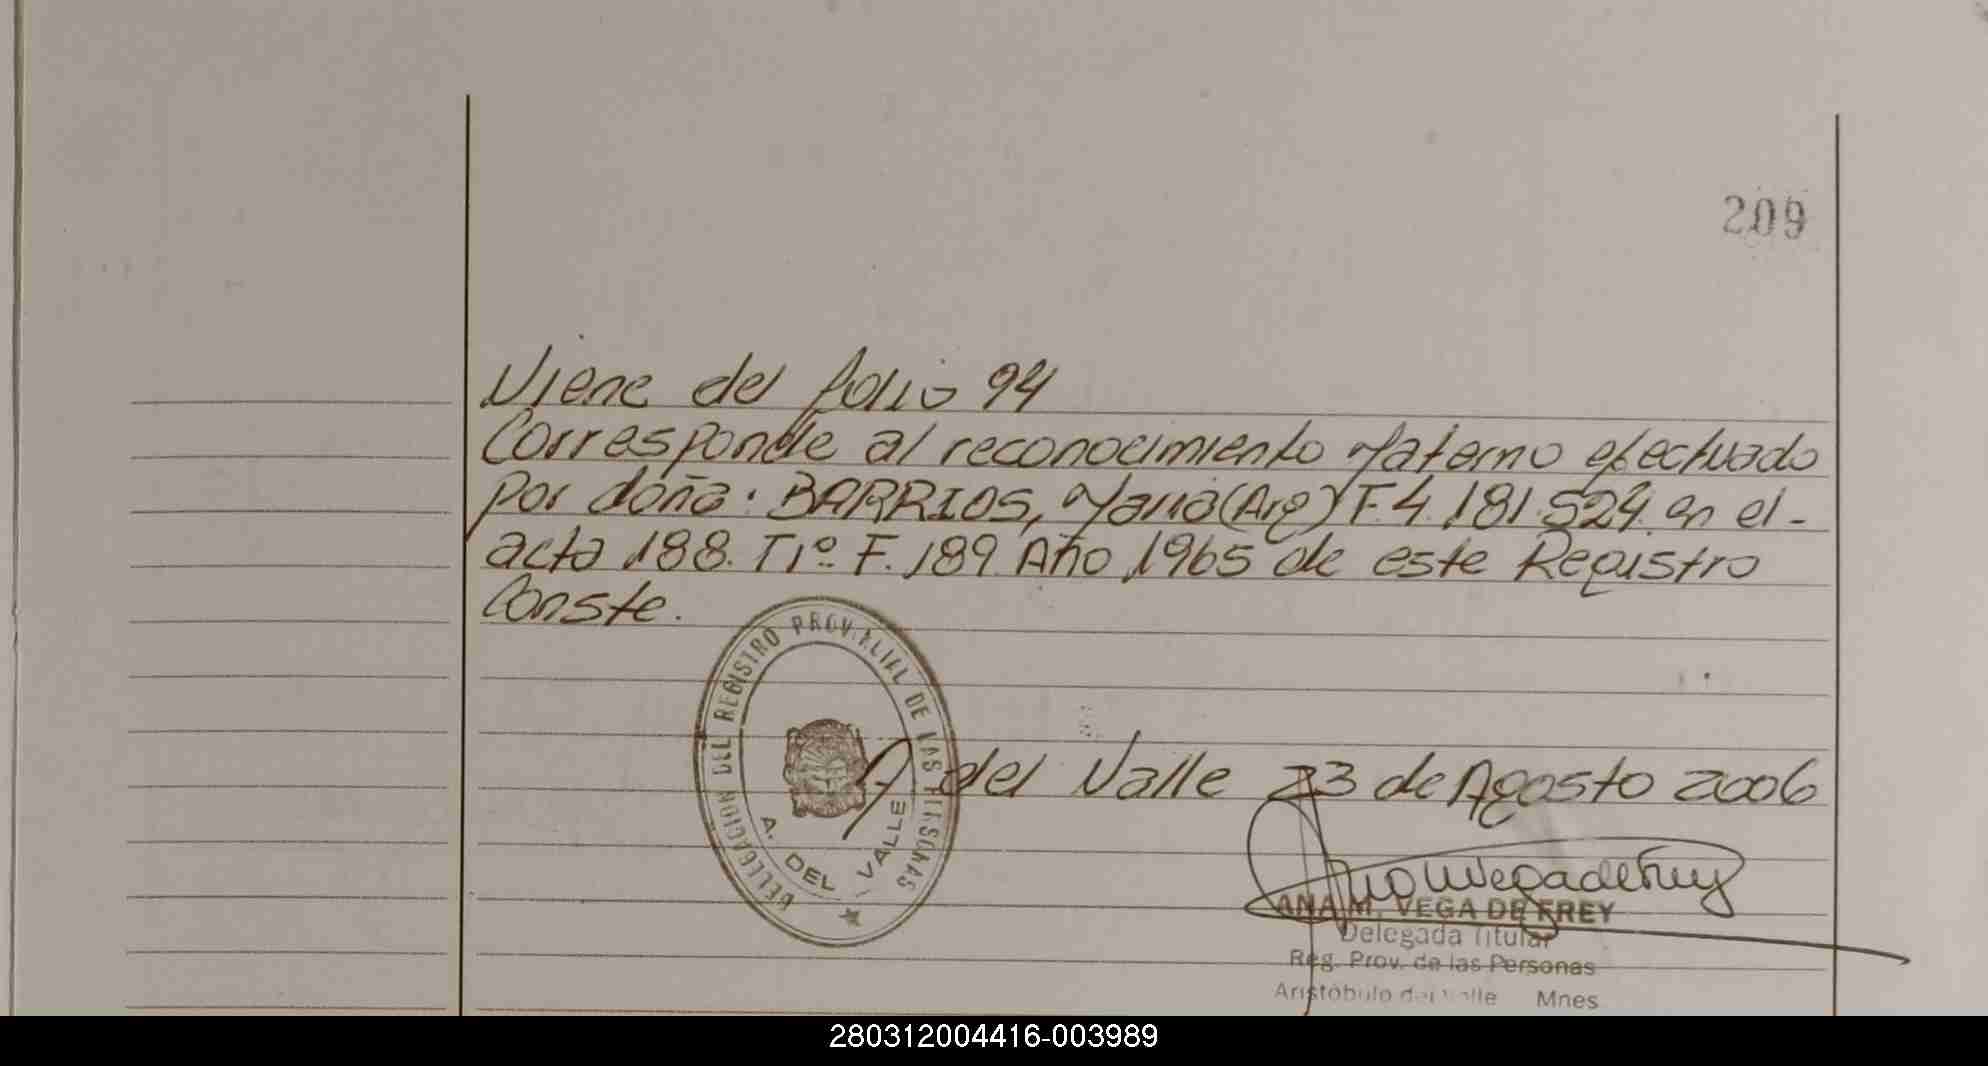 209
Viene del folio 94
Corresponde al reconocimiento Materno efectuado
por doña: BARRIOS, Maria (Arg) F. 4.181.524. en el-
acta 188. T1º F. 189. Año 1965 de este Registro
Conste.
DELLEGACION DEL REGISTRO PROVINCIAL DE LAS PERSONAS
A. DEL VALLE
A del Valle 23 de Agosto 2006
ANA M. VEGA DE FREY
Delegada Titular
Reg. Prov. de las Personas
Aristóbulo del Valle Mnes
280312004416-003989